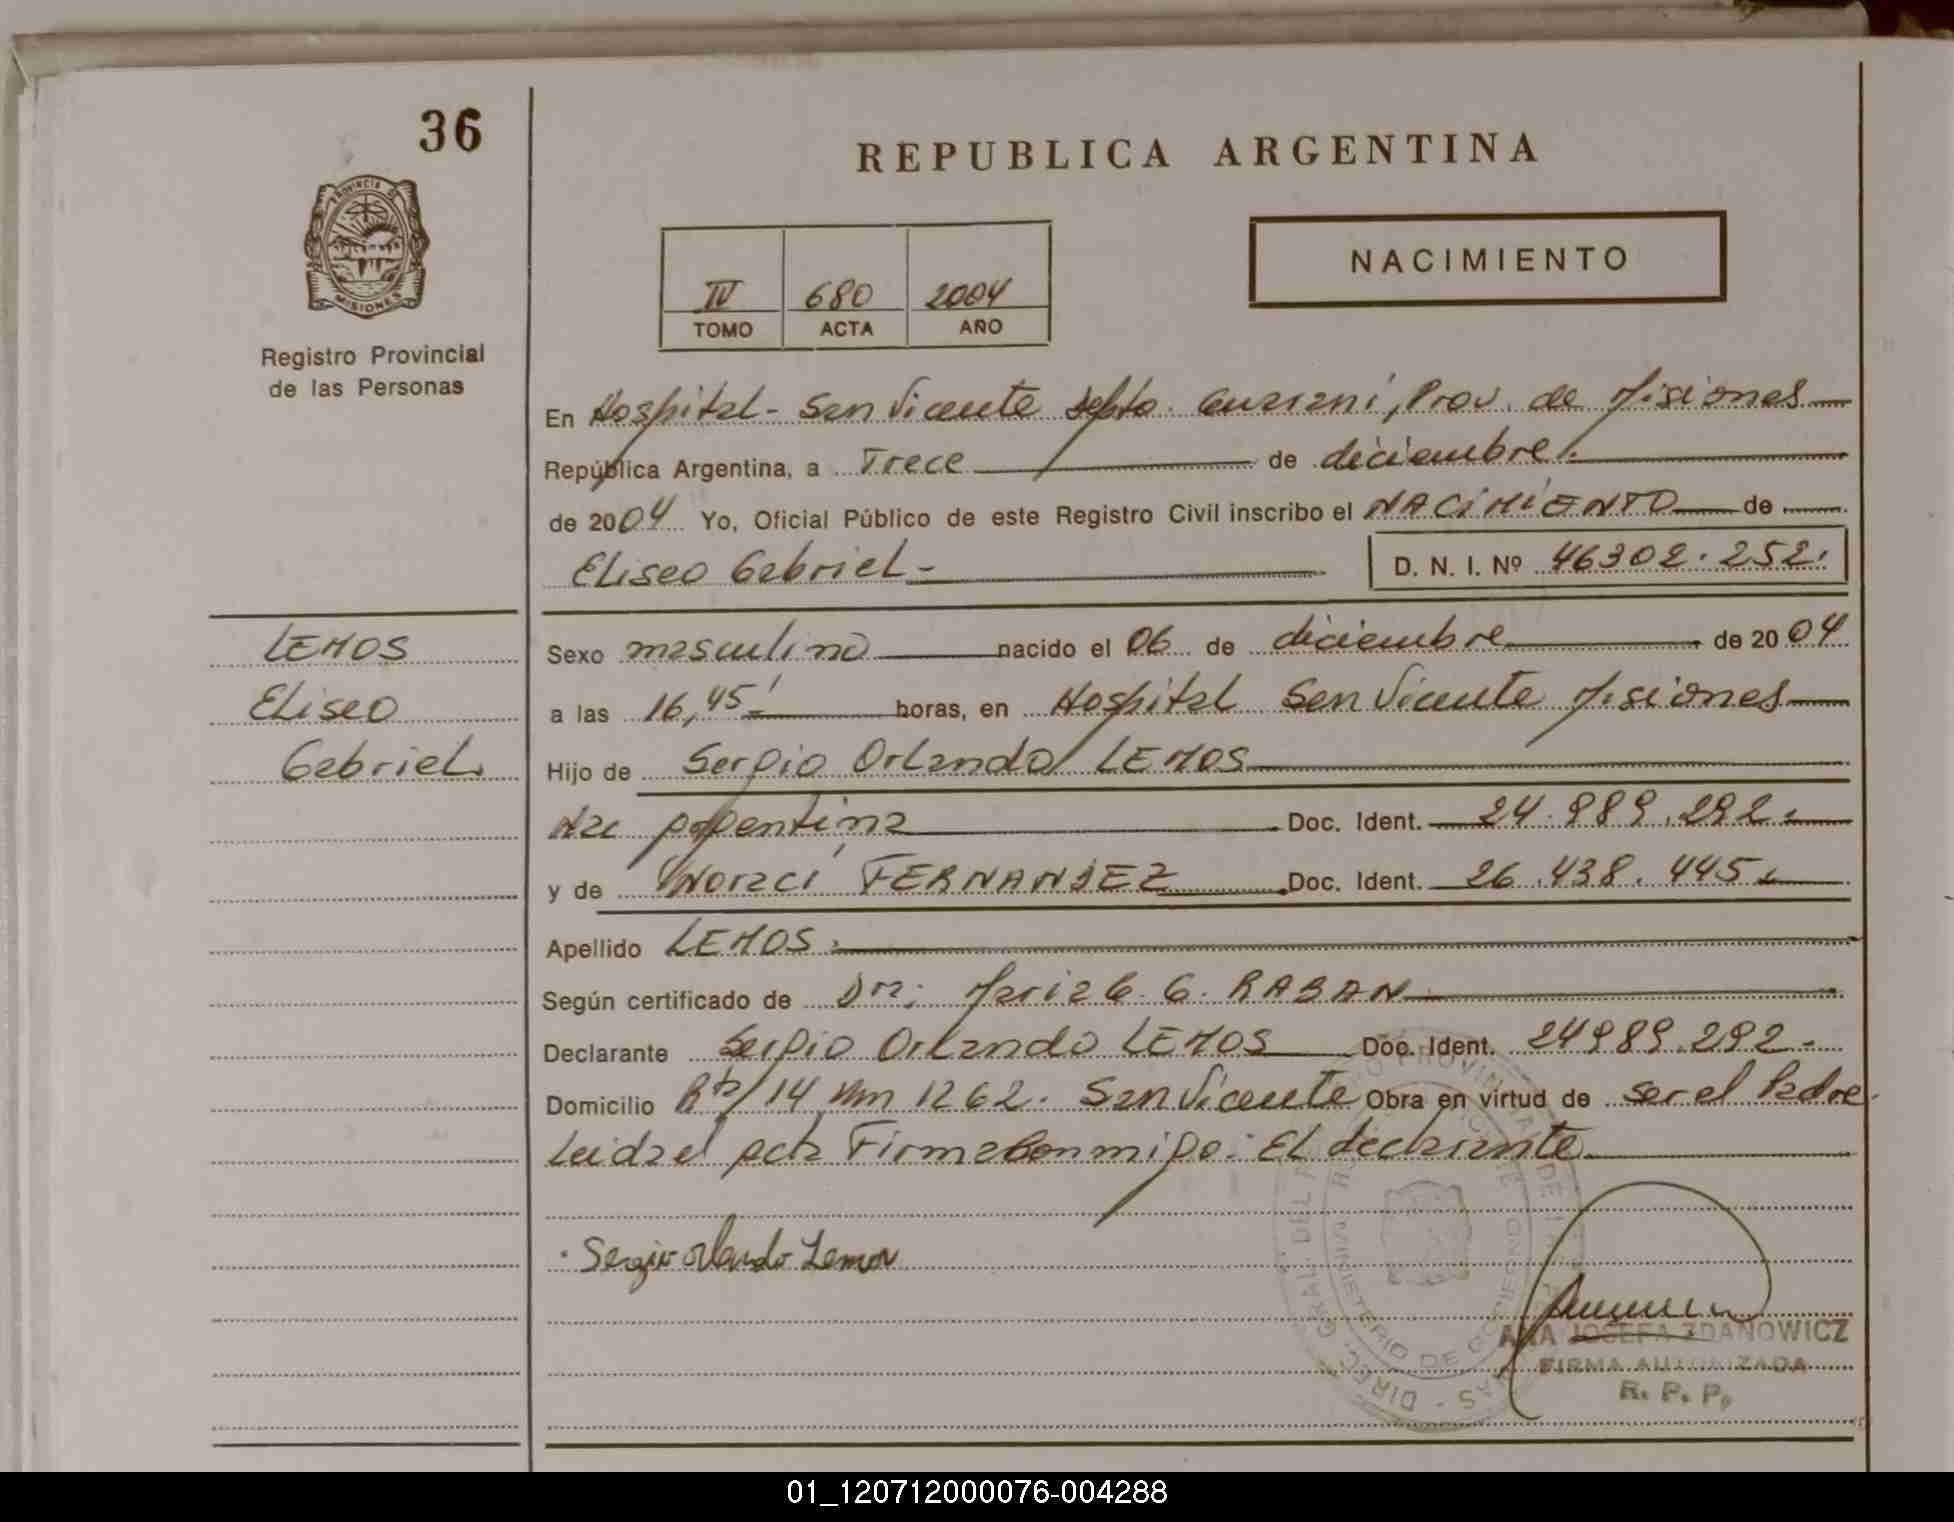 36
REPUBLICA ARGENTINA
PROVINCIA DE
MISIONES
Registro Provincial
de las Personas
NACIMIENTO
IV 680 2004
TOMO ACTA AÑO
En Hospital - San Vicente Depto. Guarani, Prov. de Misiones
República Argentina, a Trece de diciembre.
de 2004 Yo, Oficial Público de este Registro Civil inscribo el NACIMIENTO de
Eliseo Gabriel - D. N. I. Nº 46302.252.
LEMOS
Eliseo
Gabriel.
Sexo masculino nacido el 06 de diciembre de 2004
a las 16,45' horas, en Hospital San Vicente Misiones
Hijo de Sergio Orlando LEMOS
Nac argentina Doc. Ident. 24.989.292.
y de Noraci FERNANDEZ Doc. Ident. 26.438.445.
Apellido LEMOS.
Según certificado de Dra: G. RABAN
Declarante Sergio Orlando LEMOS Doc. Ident. 24989.292.-
Domicilio Rta/14 Km 1262. San Vicente Obra en virtud de ser el Padre.
Leida el acta Firma conmigo: El declarante
Sergio Orlando Lemos
ANA JOSEFA ZDANOWICZ
FIRMA AUTORIZADA
R. P. P.
01_120712000076-004288